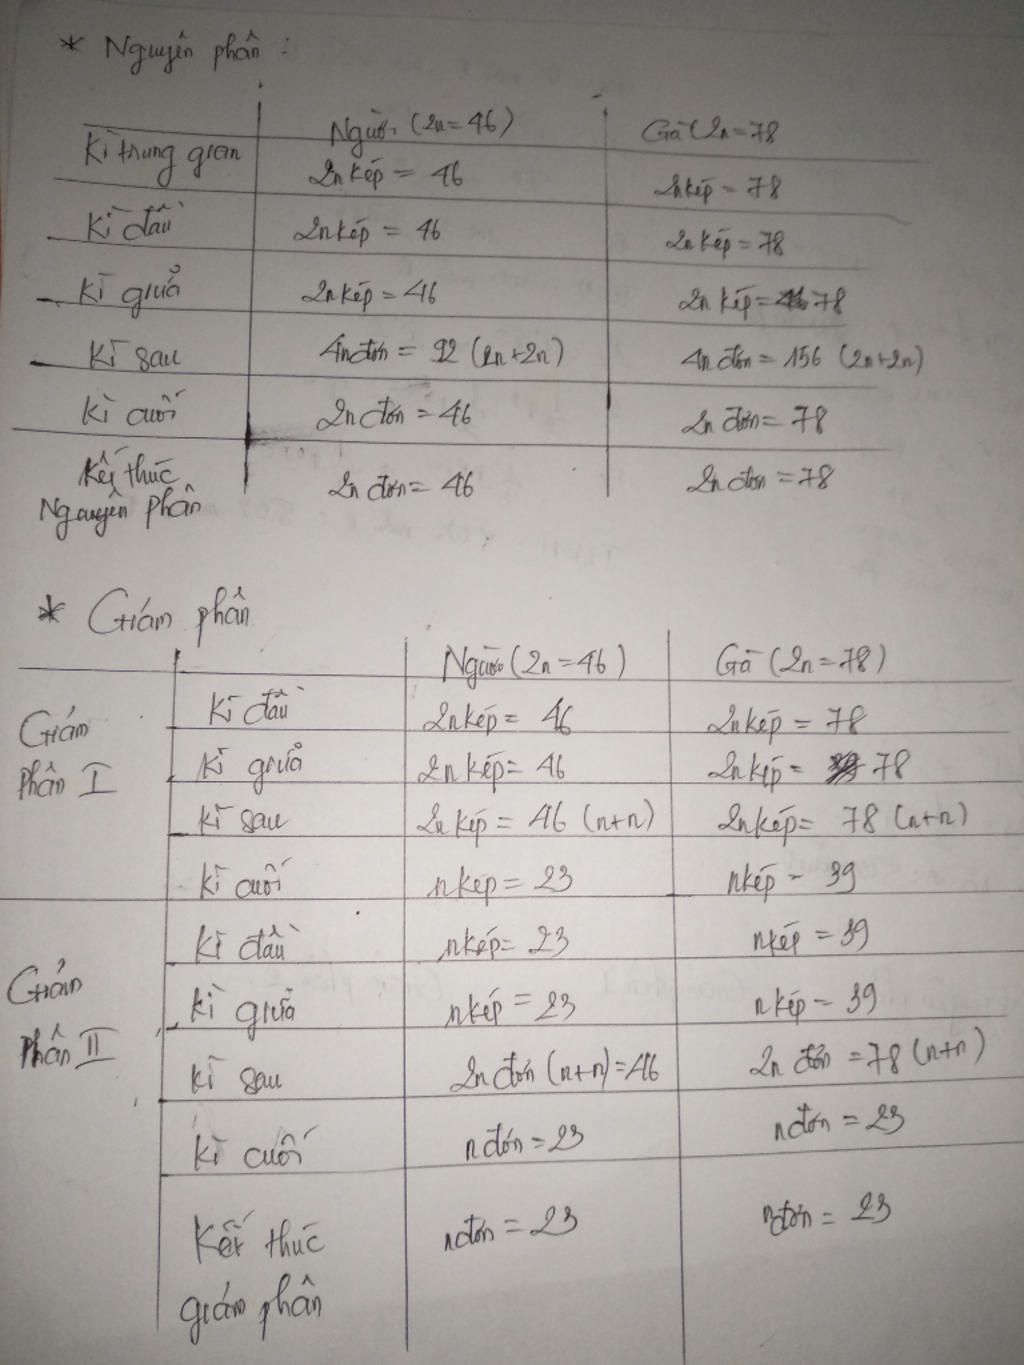 * Nguyên phân :
Người (2n = 46) Gà (2n = 78
Kì trung gian 2n kép = 46 2n kép = 78
Kì đầu 2n kép = 46 2n kép = 78
Kì giữa 2n kép = 46 2n kép = 78
Kì sau 4n đơn = 92 (2n+2n) 4n đơn = 156 (2n+2n)
Kì cuối 2n đơn = 46 2n đơn = 78
Kết thúc 2n đơn = 46 2n đơn = 78
Nguyên phân
* Giảm phân
Người (2n = 46) Gà (2n = 78)
Giảm Kì đầu 2n kép = 46 2n kép = 78
phân I Kì giữa 2n kép = 46 2n kép = 78
Kì sau 2n kép = 46 (n+n) 2n kép = 78 (n+n)
Kì cuối n kép = 23 n kép = 39
Kì đầu n kép = 23 n kép = 39
Giảm Kì giữa n kép = 23 n kép = 39
phân II Kì sau 2n đơn (n+n) = 46 2n đơn = 78 (n+n)
Kì cuối n đơn = 23 n đơn = 23
Kết thúc n đơn = 23 n đơn = 23
giảm phân